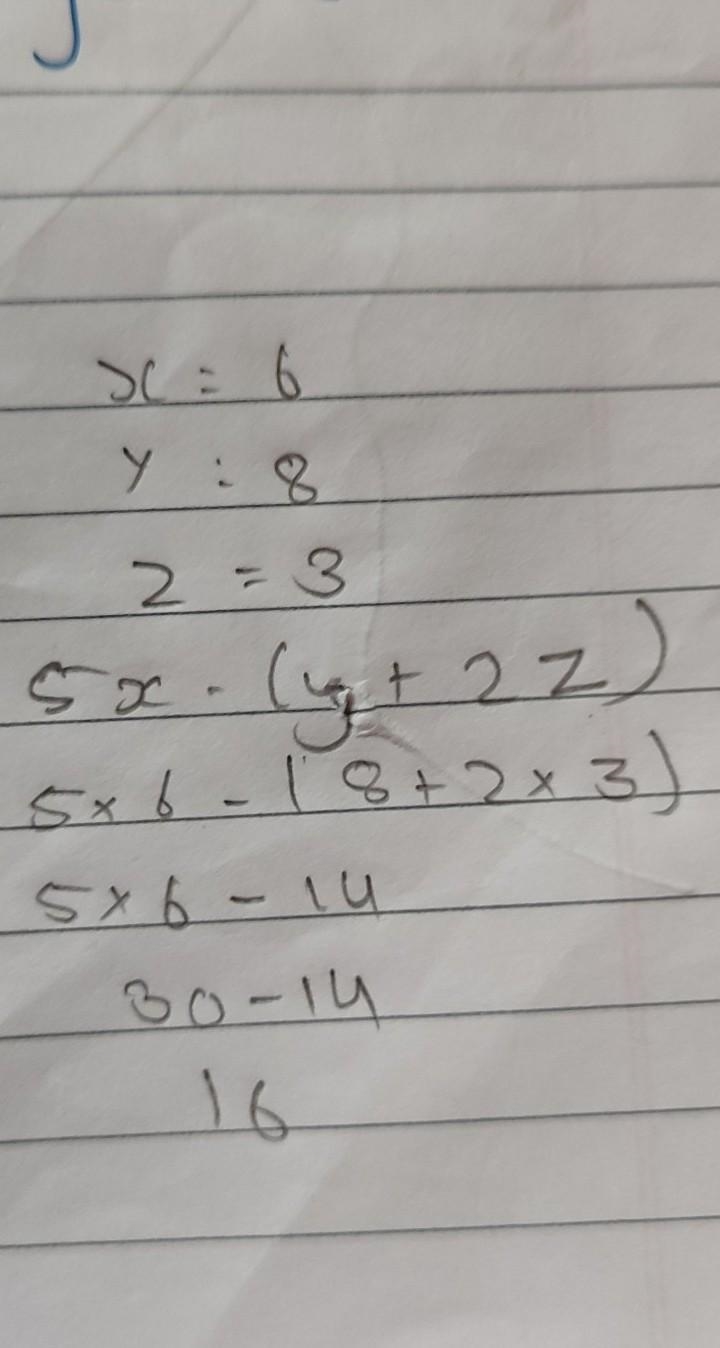 x = 6
y : 8
z = 3
5x - (y + 2z)
5 x 6 - (8 + 2 x 3)
5 x 6 - 14
30 - 14
16